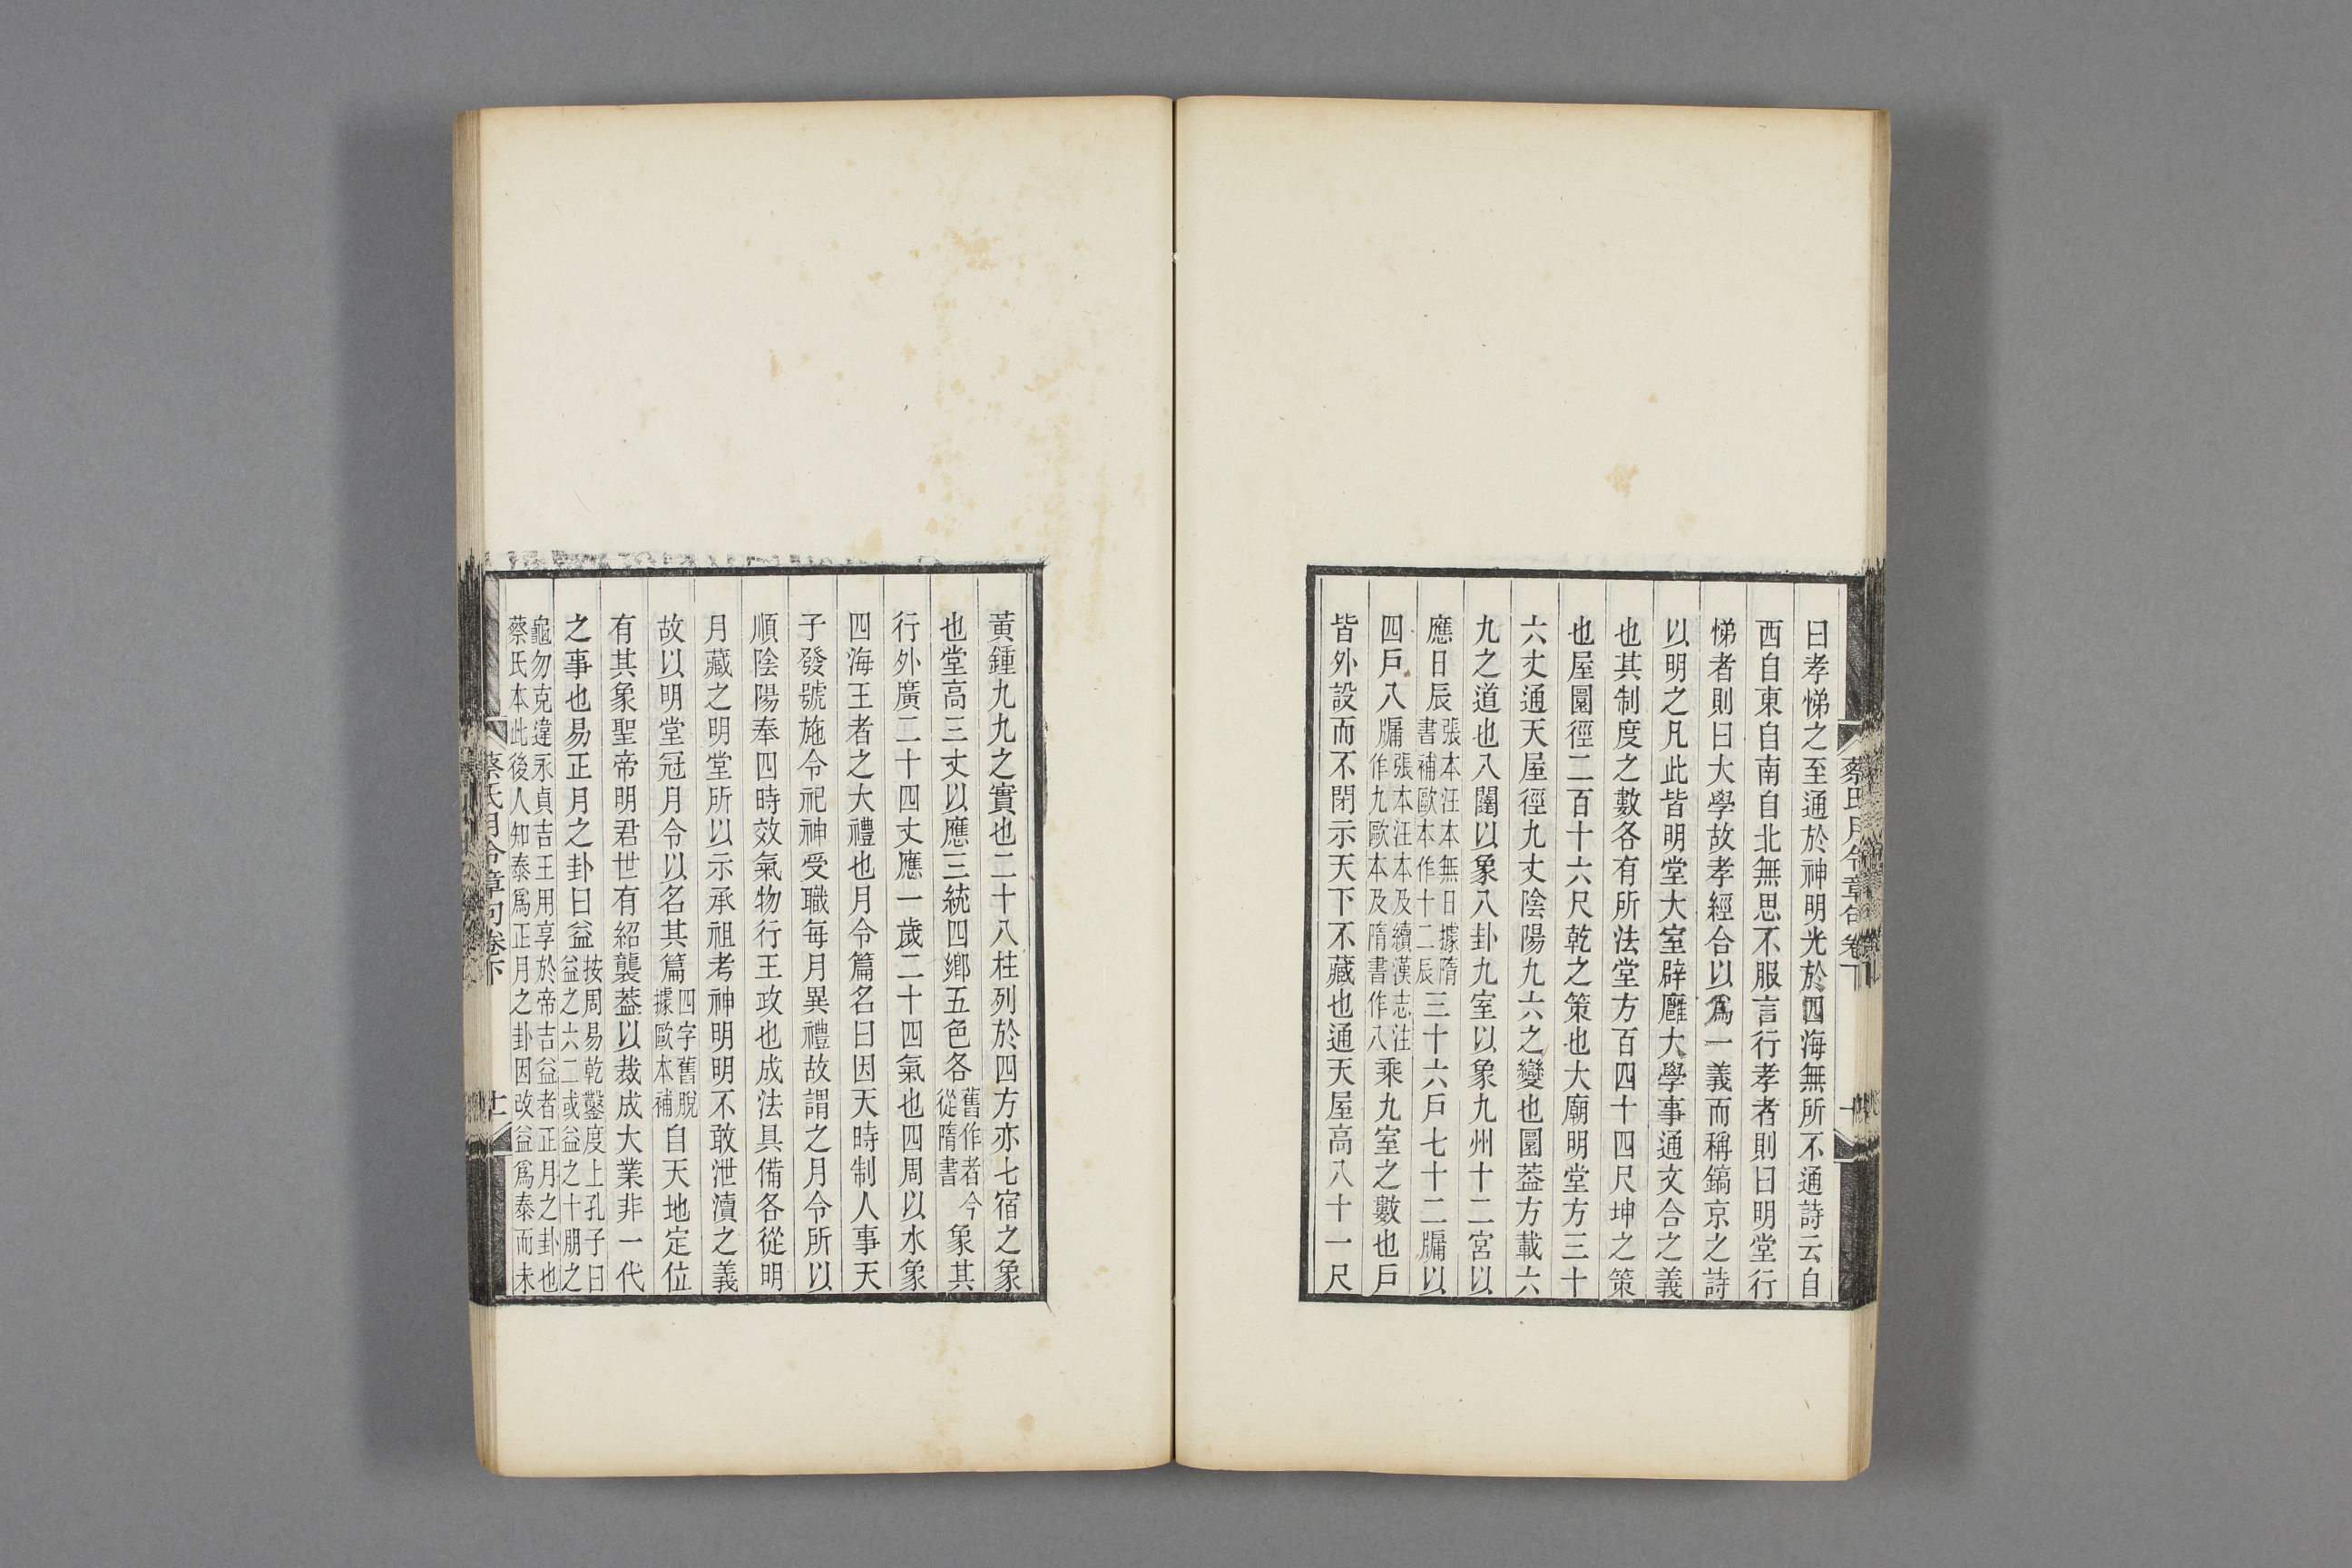 曰孝悌之至通於神明光於四海無所不通詩云自
西自東自南自北無思不服言行孝者則曰明堂行
悌者則曰大學故孝經合以爲一義而稱鎬京之詩
以明之凡此皆明堂大室辟廱大學事通文合之義
也其制度之數各有所法堂方百四十四尺坤之策
也屋圜徑二百十六尺乾之策也大廟明堂方三十
六丈通天屋徑九丈陰陽九六之變也圜葢方載六
九之道也八闥以象八卦九室以象九州十二宮以
應日辰張本汪本無日據隋書補歐本作十二辰三十六戶七十二牖以
四戶八牖張本汪本及續漢志注作九歐本及隋書作八乘九室之數也戶
皆外設而不閉示天下不藏也通天屋高八十一尺
蔡氏月令章句卷下
黃鍾九九之實也二十八柱列於四方亦七宿之象
也堂高三丈以應三統四鄉五色各舊作者今從隋書象其
行外廣二十四丈應一歲二十四氣也四周以水象
四海王者之大禮也月令篇名曰因天時制人事天
子發號施令祀神受職每月異禮故謂之月令所以
順陰陽奉四時效氣物行王政也成法具備各從明
月藏之明堂所以示承祖考神明明不敢泄瀆之義
故以明堂冠月令以名其篇四字舊脫據歐本補自天地定位
有其象聖帝明君世有紹襲葢以裁成大業非一代
之事也易正月之卦曰益按周易乾鑿度上孔子曰益之六二或益之十朋之
龜勿克違永貞吉王用享於帝吉益者正月之卦也
蔡氏本此後人知泰爲正月之卦因改益爲泰而未
蔡氏月令章句卷下
十二